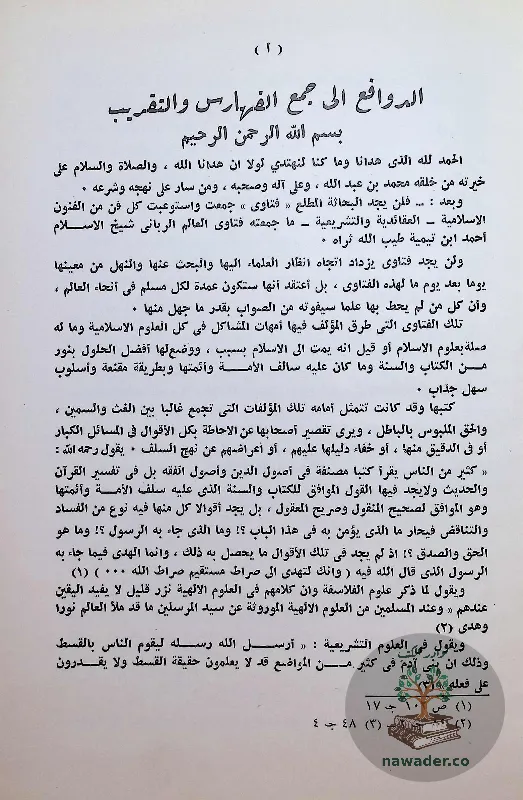 ( ٢ )
الدوافع الى جمع الفهارس والتقريب
بسم الله الرحمن الرحيم
الحمد لله الذى هدانا وما كنا لنهتدي لولا ان هدانا الله ، والصلاة والسلام على
خيرته من خلقه محمد بن عبد الله ، وعلى آله وصحبه ، ومن سار على نهجه وشرعه ٠
وبعد : ــ فلن يجد البحاثة المطلع « فتاوى » جمعت واستوعبت كل فن من الفنون
الاسلامية ــ العقائدية والتشريعية ــ ما جمعته فتاوى العالم الربانى شيخ الاســلام
أحمد ابن تيمية طيب الله ثراه ٠
ولن يجد فتاوى يزداد اتجاه أنظار العلماء اليها والبحث عنها والنهل من معينها
يوما بعد يوم ما لهذه الفتاوى ، بل أعتقد أنها ستكون عمدة لكل مسلم فى أنحاء العالم ،
وأن كل من لم يحط بها علما سيفوته من الصواب بقدر ما جهل منها ٠
تلك الفتاوى التى طرق المؤلف فيها أمهات المشاكل فى كل العلوم الاسلامية وما له
صلة بعلوم الاسلام أو قيل انه يمت الى الاسلام بسبب ، ووضع لها أفضل الحلول بنور
مــن الكتاب والسنة وما كان عليه سالف الأمــة وأئمتها وبطريقة مقنعة وأسلوب
سهل جذاب ٠
كتبها وقد كانت تتمثل أمامه تلك المؤلفات التى تجمع غالبا بين الغث والسمين ،
والحق الملبوس بالباطل ، ويرى تقصير أصحابها عن الاحاطة بكل الأقوال فى المسائل الكبار
أو فى الدقيق منها ، أو خفاء دليلها عليهم ، أو اعراضهم عن نهج السلف ٠ يقول رحمه الله :
« كثير من الناس يقرأ كتبا مصنفة فى أصول الدين وأصول الفقه بل فى تفسير القرآن
والحديث ولايجد فيها القول الموافق للكتاب والسنة الذى عليه سلف الأمــة وأئمتها
وهو الموافق لصحيح المنقول وصريح المعقول ، بل يجد أقوالا كل منها فيه نوع من الفساد
والتناقض فيحار ما الذى يؤمن به فى هذا الباب ؟! وما الذى جاء به الرسول ؟! وما هو
الحق والصدق ؟! اذ لم يجد فى تلك الأقوال ما يحصل به ذلك ، وانما الهدى فيما جاء به
الرسول الذى قال الله فيه ( وانك لتهدى الى صراط مستقيم صراط الله ٠٠٠ ) (١)
ويقول لما ذكر علوم الفلاسفة وان كلامهم فى العلوم الالهية نزر قليل لا يفيد اليقين
عندهم « وعند المسلمين من العلوم الالهية الموروثة عن سيد المرسلين ما قد ملأ العالم نورا
وهدى (٢)
ويقول فى العلوم التشريعية : « أرســل الله رسـله ليقوم الناس بالقسط
وذلك ان بنى آدم فى كثير مــن المواضع قد لا يعلمون حقيقة القسط ولا يقــدرون
على فعله (٣)
(١) ص ١٠ جـ ١٧
(٢) (٣) ٤٨ جـ ٤
nawader.co